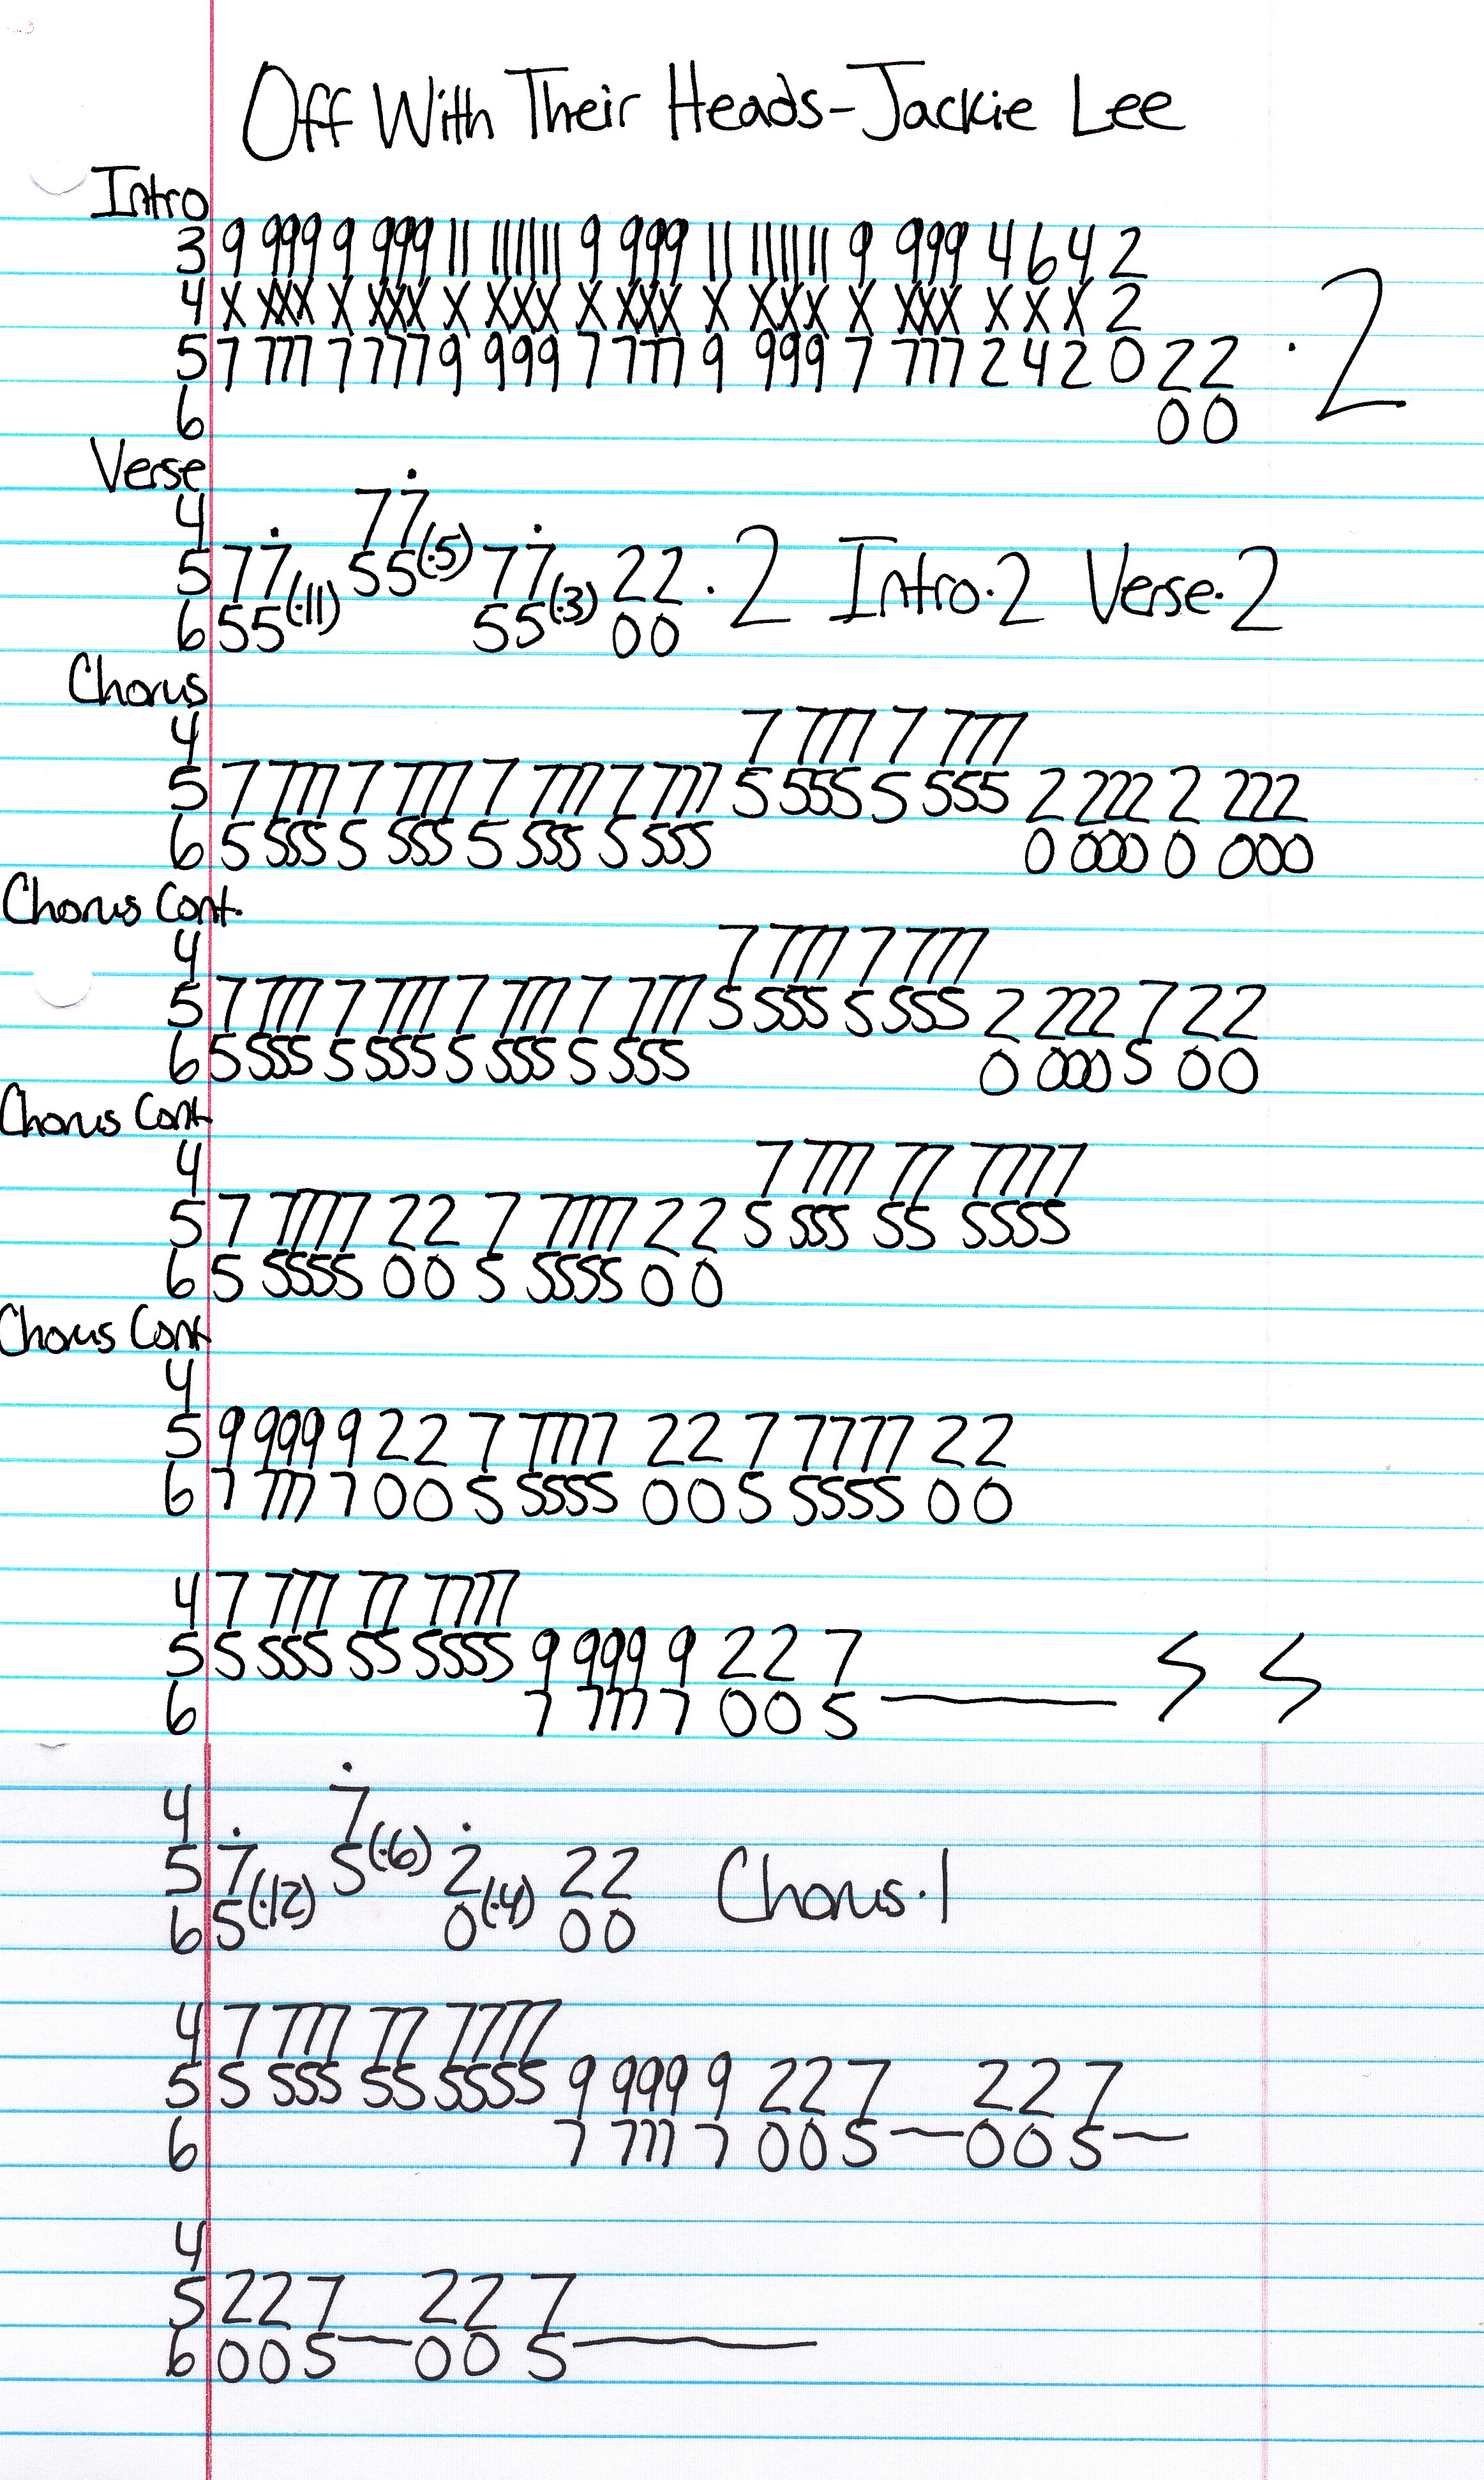 Off With Their Heads-Jackie Lee
Intro
3 9 999 9 999 11 111111 9 999 11 111111 9 999 4 6 4 2
4 X XXX X XXX X XXX X XXX X XXX X XXX X X X 2
5 7 777 7 777 9 999 7 777 9 999 7 777 2 4 2 0 2 2 · 2
6 0 0
Verse
4 7 7̇
5 7 7̇ 5 5(·5) 7 7̇ 2 2 · 2 Intro·2 Verse·2
6 5 5(·11) 5 5(·3) 0 0
Chorus
4 7 777 7 777
5 7 777 7 777 7 777 7 777 5 555 5 555 2 222 2 222
6 5 555 5 555 5 555 5 555 0 000 0 000
Chorus Cont.
4 7 777 7 777
5 7 777 7 777 7 777 7 777 5 555 5 555 2 222 7 2 2
6 5 555 5 555 5 555 5 555 0 000 5 0 0
Chorus Cont
4 7 777 77 7777
5 7 7777 2 2 7 7777 2 2 5 555 55 5555
6 5 5555 0 0 5 5555 0 0
Chorus Cont
4
5 9 999 9 2 2 7 7777 2 2 7 7777 2 2
6 7 777 7 0 0 5 5555 0 0 5 5555 0 0
4 7 777 77 7777
5 5 555 55 5555 9 999 9 2 2 7
6 7 777 7 0 0 5
4 7̇
5 7̇ 5(·6) 2̇ 2 2 Chorus·1
6 5(·12) 0(·4) 0 0
4 7 777 77 7777
5 5 555 55 5555 9 999 9 2 2 7 2 2 7
6 7 777 7 0 0 5 — 0 0 5 —
4
5 2 2 7 2 2 7
6 0 0 5 — 0 0 5 —